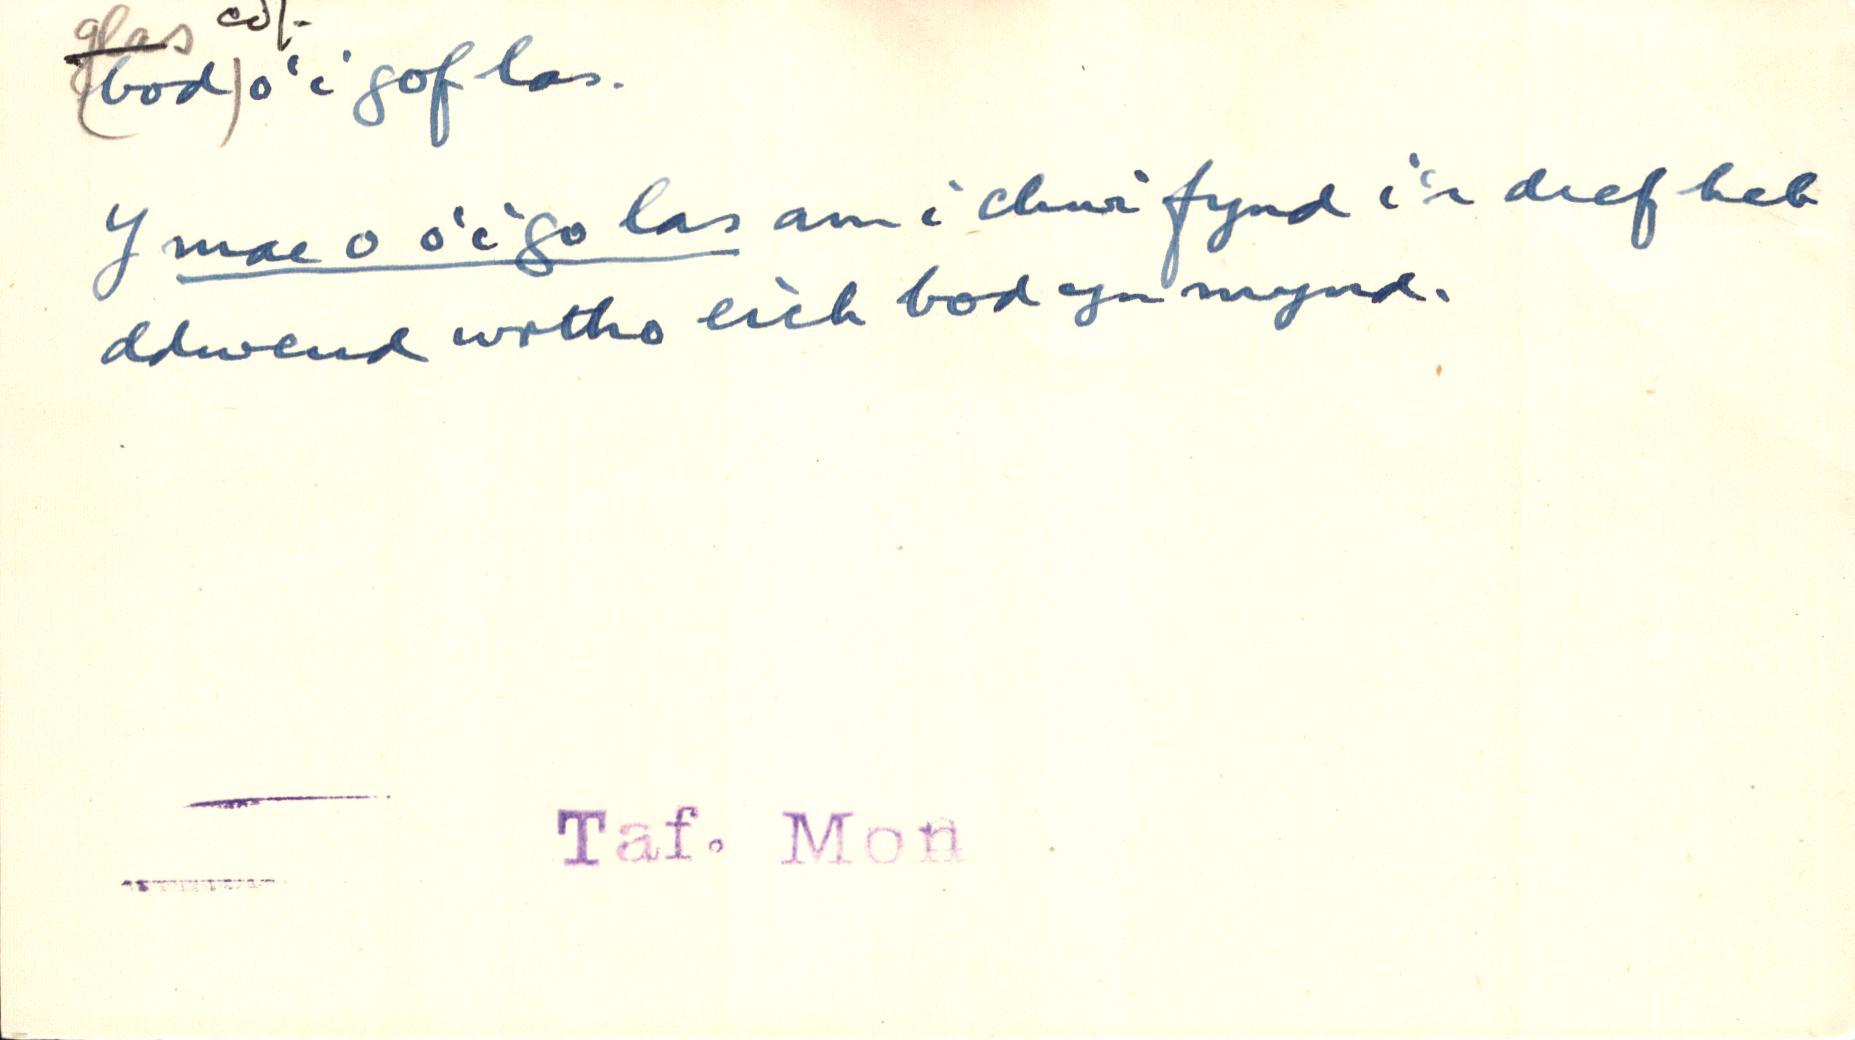 glas
(bod) o'i gof las.
Y mae o o'i go las am i chwi fynd i'r dref heb
ddweud wrtho eich bod yn mynd.
Taf. Mon